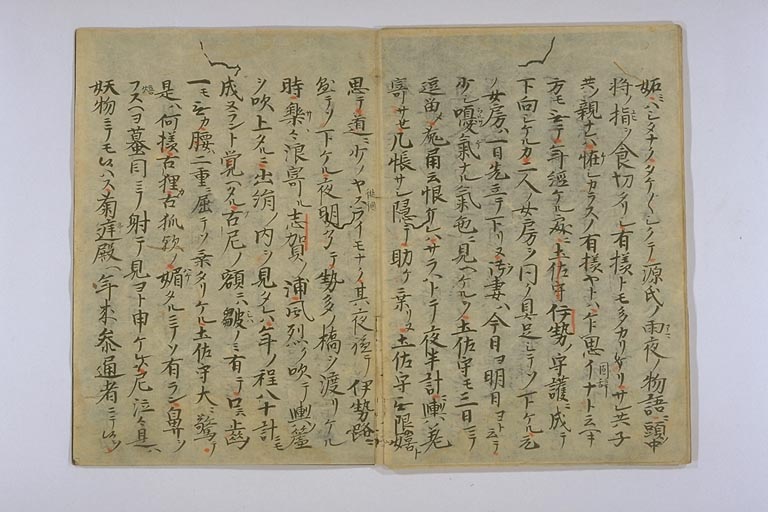 妬ハシタナクタケ〳〵シクテ源氏ノ雨夜ノ物語ニ頭中
将ノ指ヲ食切タリシ有様トモ多カリケリサレ共子
共ノ親ナレハ恠シカラスノ有様ヤトハ乍思イナト云
方モ無テ年経ケル處ニ土佐守伊勢ノ守護ニ成テ
下向シケルカ二人ノ女房ヲ同ノ具足シテソ下ケル元
ノ女房ハ一日先ニテ下リヌ新妻ハ今日ヨ明日ヨト云テ
少シ憂氣ナル氣色ニ見ヘケレハ土佐守モ三日
逗留メ兎角云恨ケレハサラハトテ夜半計ニ輿
寄サセ几帳サシ隠テ助ケ乗リヌ土佐守無限嬉
思テ道ニ少ノヤスライモナク其夜ヤカテ伊勢路ニ
ソ下ケル夜明ケテ勢多ノ橋ヲ渡リケル
時樂々浪寄ル志賀ノ浦風烈ク吹テ輿ノ簾
ヲ吹上タルニ出絹ノ内ヲ見タレハ年ノ程八十計ニモ
成ヌラント覚ヘタル古尼ノ額ニハ皺ノミ有テ口ニハ歯
一モ無カ腰二重ニ屈テソ乗タリケル土佐守大ニ驚テ
是ハ何様古狸古狐歟ノ媚タルニテソ有ラン鼻ヲ
フスヘヨ蟇目ニテ射テ見ヨト申ケレハ尼泣々是ハ
妖物ニテモ候ハス菊亭殿ヘ年来参通者ニテ候ヲ